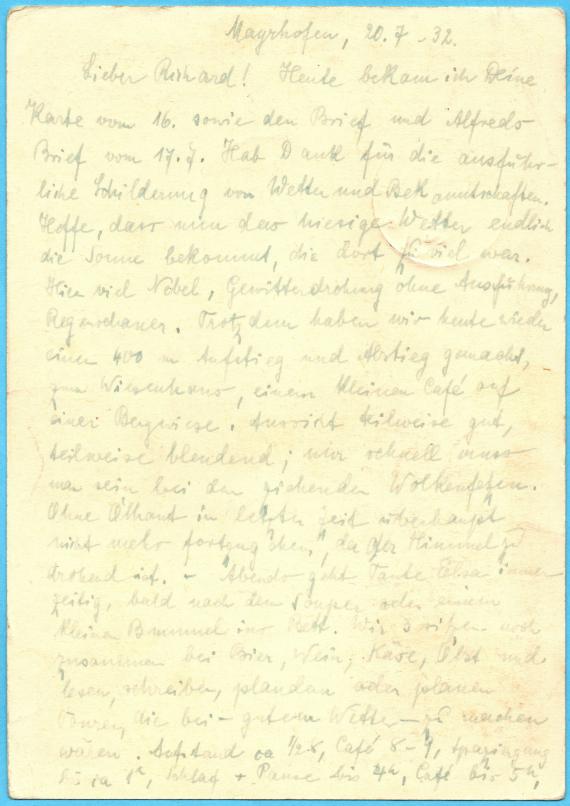 Mayrhofen, 20.7.-32.
Lieber Richard! Heute bekam ich Deine
Karte vom 16. sowie den Brief und Alfreds
Brief vom 17.7. Hab Dank für die ausführ-
liche Schilderung von Wetter und Bekanntschaften.
Hoffe, dass nun das hiesige Wetter endlich
die Sonne bekommt, die dort zu viel war.
Hier viel Nebel, Gewitterdrohung ohne Ausführung,
Regenschauer. Trotzdem haben wir heute wieder
einen 400 m Aufstieg und Abstieg gemacht,
zum Wiesenhaus, einem kleinen Café auf
einer Bergwiese. Aussicht teilweise gut,
teilweise blendend; nur schnell muss
man sein bei den ziehenden Wolkenfetzen.
Ohne in letzter Zeit überhaupt
nicht mehr da der Himmel zu
drohend ist. - Abends geht Tante Elsa immer
zeitig, bald nach dem Souper oder einem
kleinen Bummel ins Bett. Wir 3 sitzen noch
zusammen bei Bier, Wein, Käse, Obst und
lesen, schreiben, plaudern oder planen
Touren, die bei - gutem Wetter - zu machen
wären. Aufstand ca 1/2 8, Café 8-9, Spaziergang
bis ca 1h, Schlaf + Pause bis 4h, Café bis 5h,